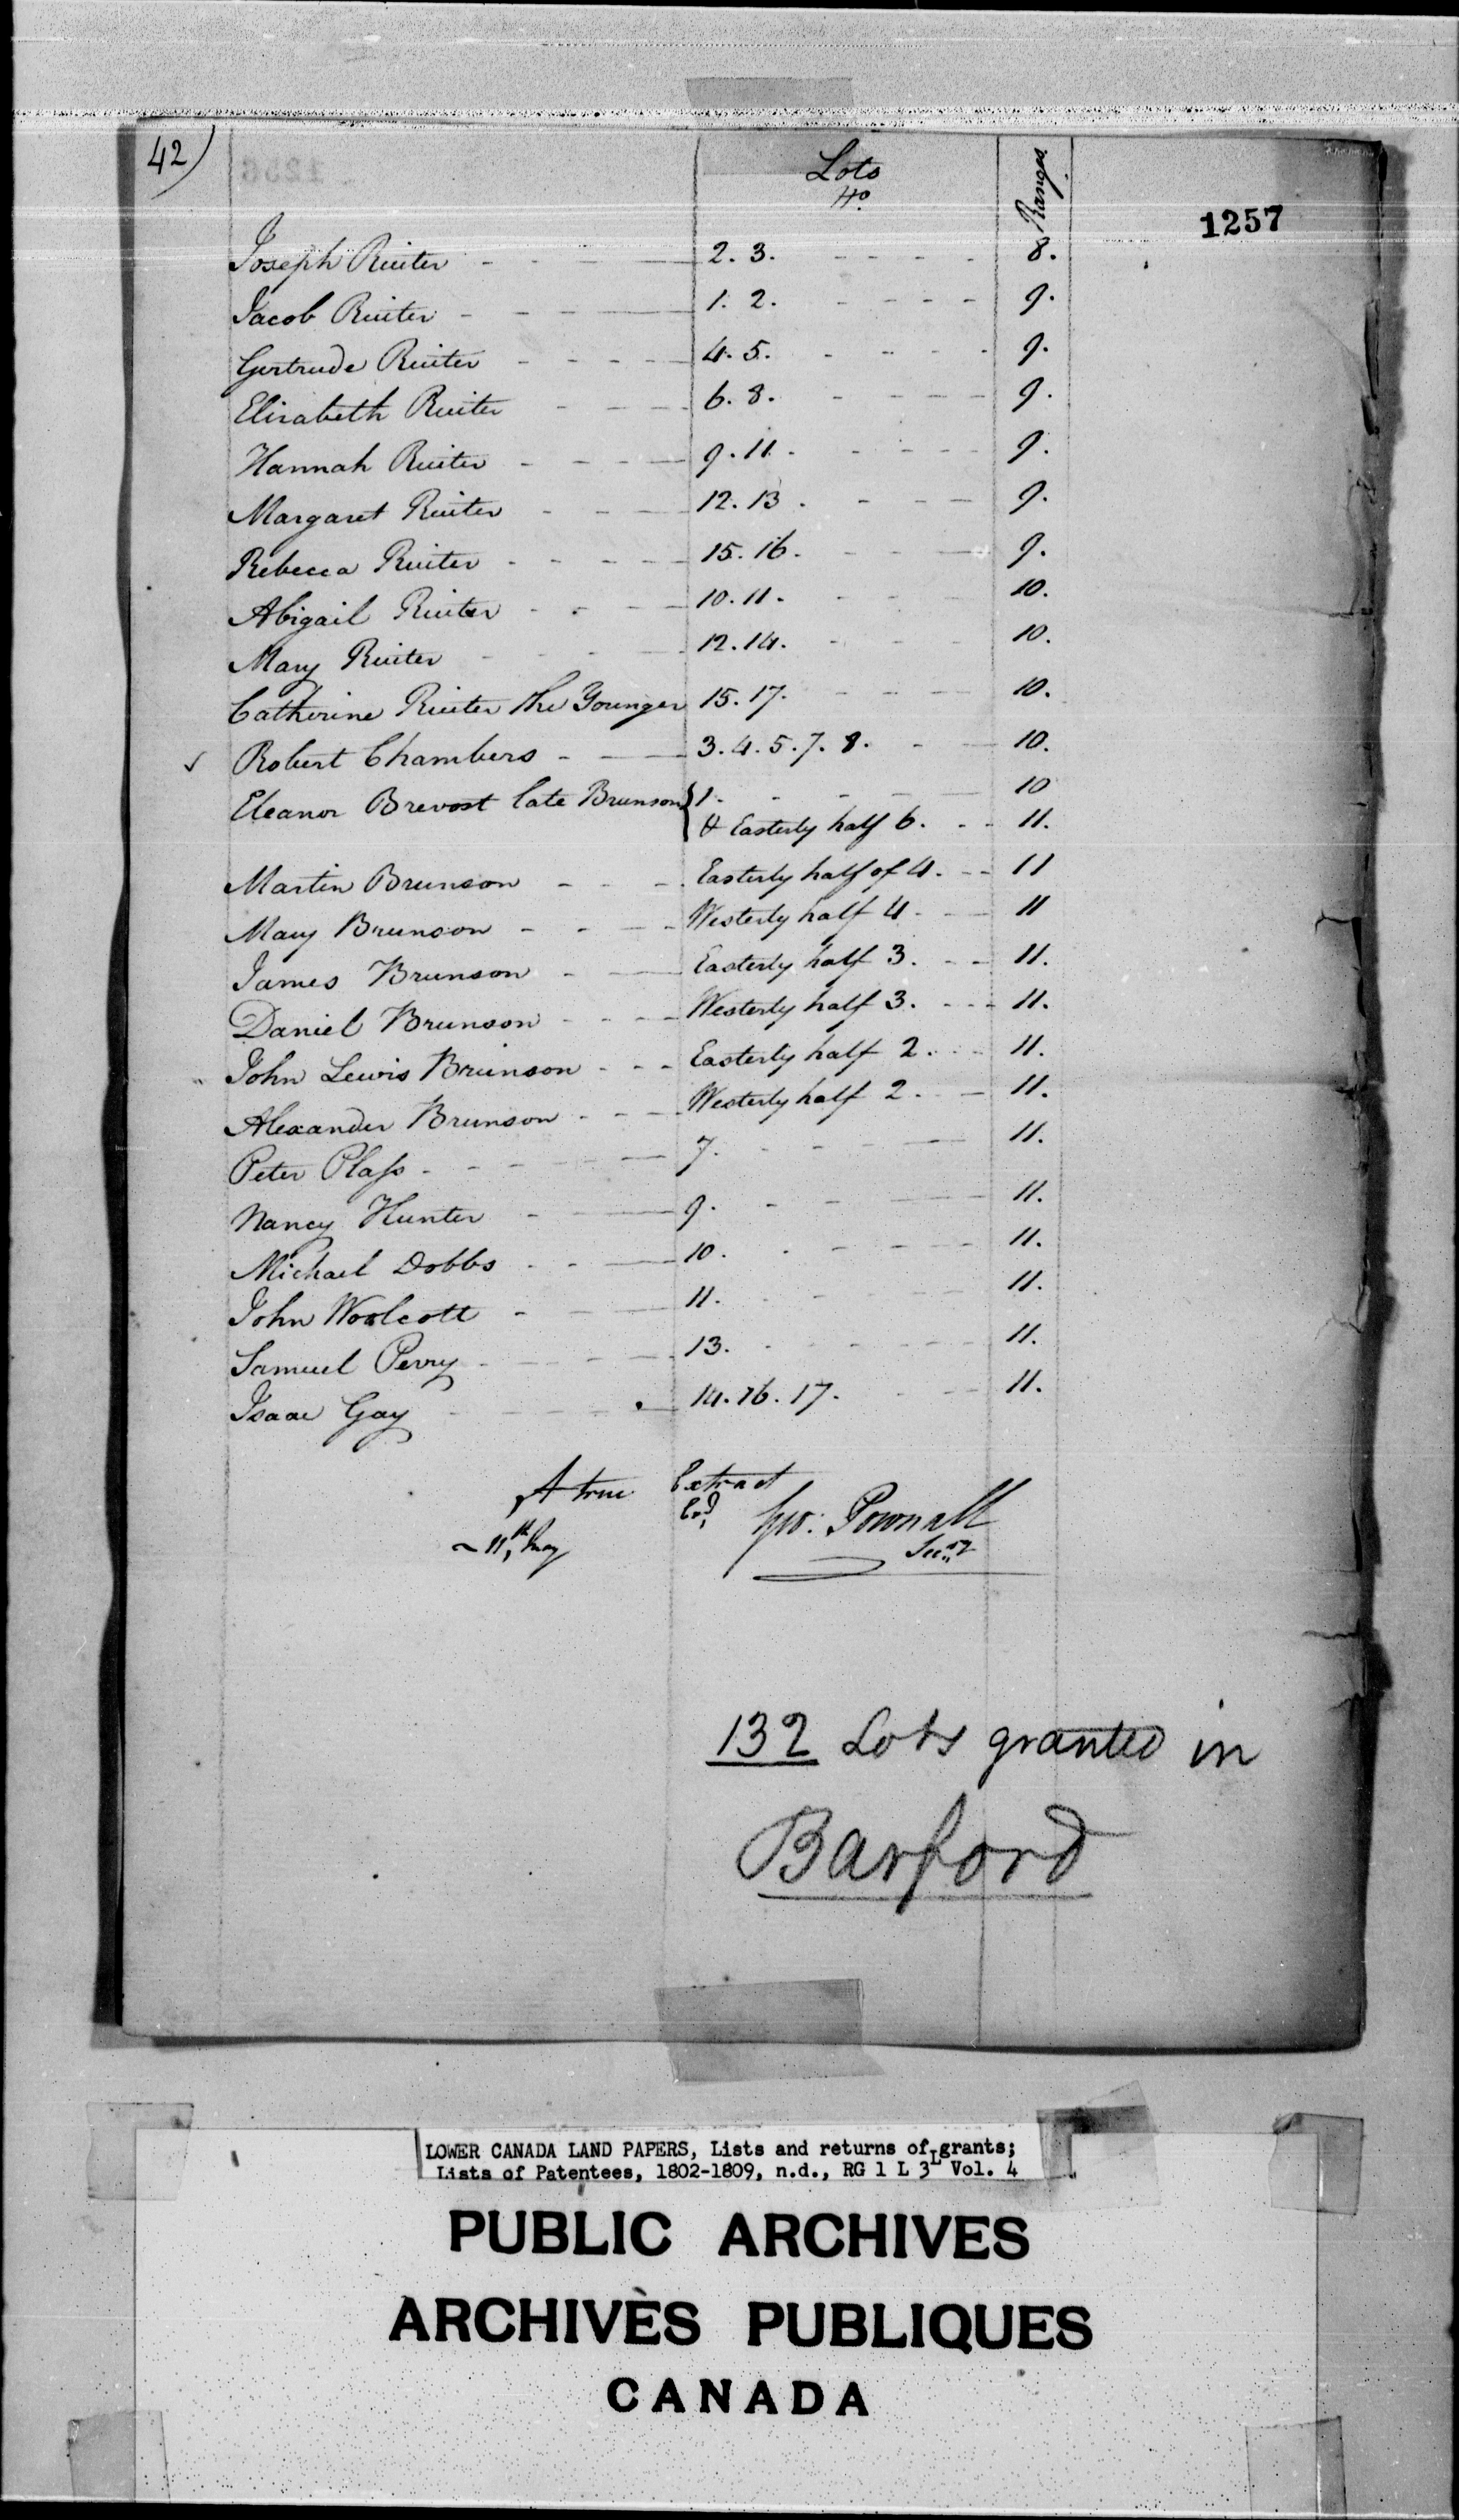 42)
Lots
No.
Ranges
1257
Joseph Ruiter - - - 2. 3. - - - - - 8.
Jacob Ruiter - - - 1. 2. - - - - 9.
Gertrude Ruiter - - - - 4. 5. - - - - 9.
Elizabeth Ruiter - - - 6. 8. - - - - 9.
Hannah Ruiter - - - - 9. 11. - - - - 9.
Margaret Ruiter - - - 12. 13. - - - 9.
Rebecca Ruiter - - - - 15. 16. - - - 9.
Abigail Ruiter - - - - 10. 11. - - - 10.
Mary Ruiter - - - - 12. 14. - - - 10.
Catherine Ruiter the Younger 15. 17. - - - 10.
✓ Robert Chambers - - 3. 4. 5. 7. 8. - - 10.
Eleanor Brevost late Brunson { 1. - - - - 10
& Easterly half 6. - - 11.
Martin Brunson - - - Easterly half of 4. - - 11
Mary Brunson - - - - Westerly half 4 - - 11
James Brunson - - Easterly half 3. - - 11.
Daniel Brunson - - - - Westerly half 3. - - - 11.
John Lewis Brunson - - - Easterly half 2. - - 11.
Alexander Brunson - - - Westerly half 2. - - 11.
Peter Plass - - - - 7. - - - - 11.
Nancy Hunter - - 9. - - - 11.
Michael Dobbs - - - 10. - - - - - 11.
John Woolcott - - - 11. - - - - 11.
Samuel Perry - - - - 13. - - - - - 11.
Isaac Gay - - - - - 14. 16. 17. - - 11.
A true Extract
Geo: Pownall
Secry
132 Lots granted in
Barford
LOWER CANADA LAND PAPERS, Lists and returns of grants;
Lists of Patentees, 1802-1809, n.d., RG 1 L 3L Vol. 4
PUBLIC ARCHIVES
ARCHIVES PUBLIQUES
CANADA